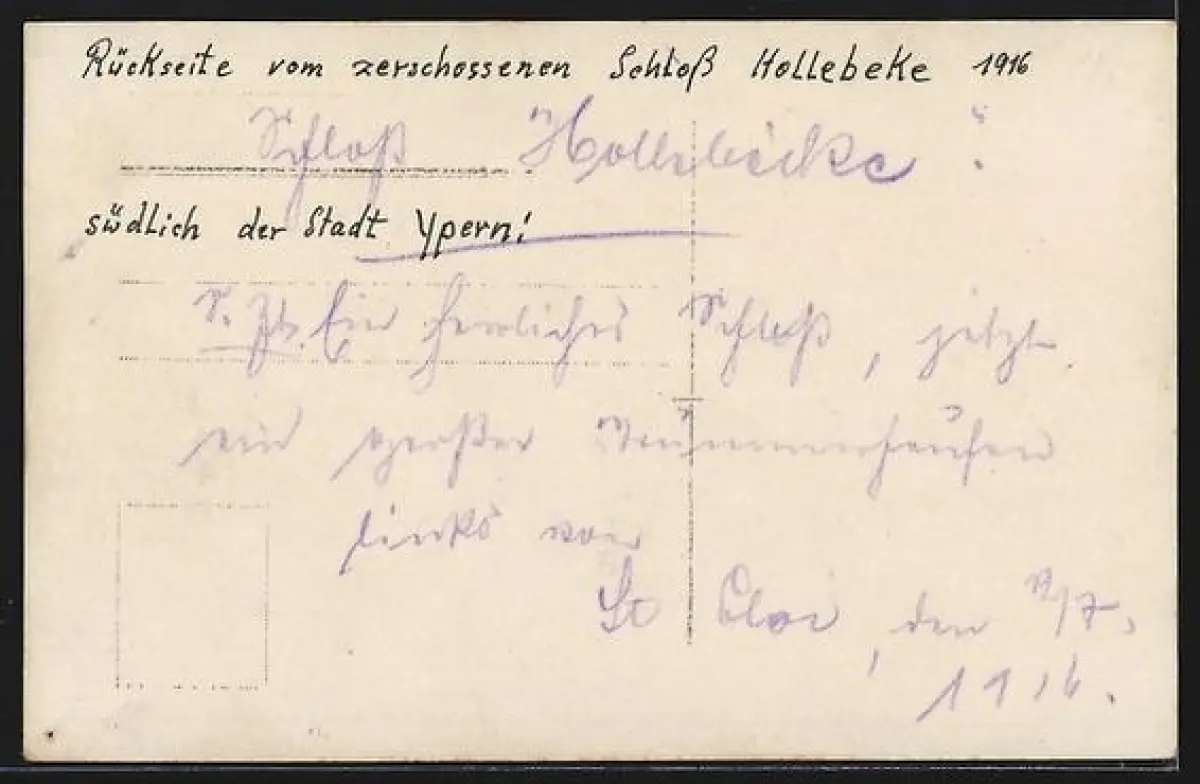 Rückseite vom zerschossenen Schloß Hollebeke 1916
Schloß "Hollebecke".
südlich der Stadt Ypern!
S. Zt. Ein herrliches Schloß, jetzt
ein großer Trümmerhaufen
links von
St Eloi, den /7.
1916.